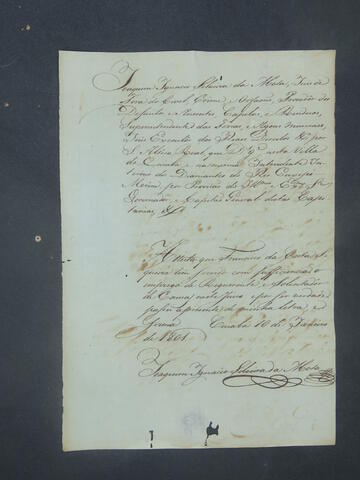 Joaquim Ignacio Silveira da Mota, Juis de
Fora do Civel, Crime e Orfaons, Provedor dos
Defuntos e Auzentes, Capelas, e Residuos,
Superintendente das Terras, e Agoas mineraes,
Juis Executor dos Reaes Direitos &ª por
S. Alteza Real, que Dˢ Gᵉ nesta Villa
do Cuiabá, e na mesma Intendente In-
terino dos Diamantes do
por Provizão do Illmo e Exmo Sr.
Governador, e Capitão General destas Capi-
tanias, &ª
Attesto que Francisco da Costa
tem servido com sufficiencia o
emprego de Requerente, e Solicitador
de Cauza neste Juizo e por ser verdade
passei a prezente de minha letra, e
firma. Cuiabá 10 de Janeiro
de 1801
Joaquim Ignacio Silveira da Mota